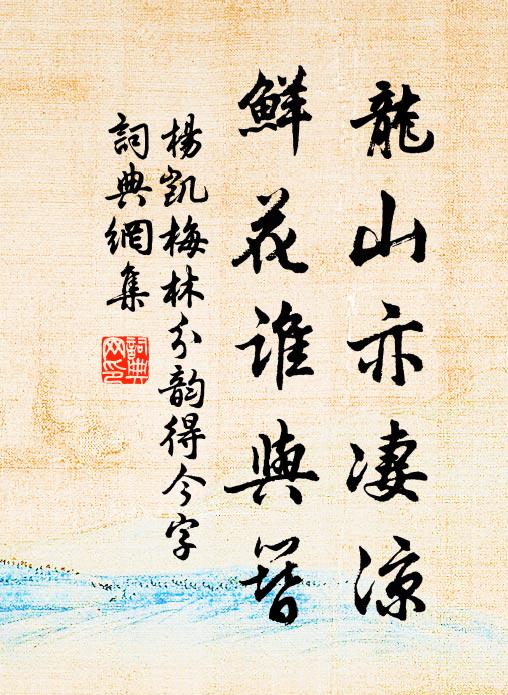 龍山亦凄涼
鮮花誰與簪
楊凱梅林分韵得今字
詞典網集
詞典网印